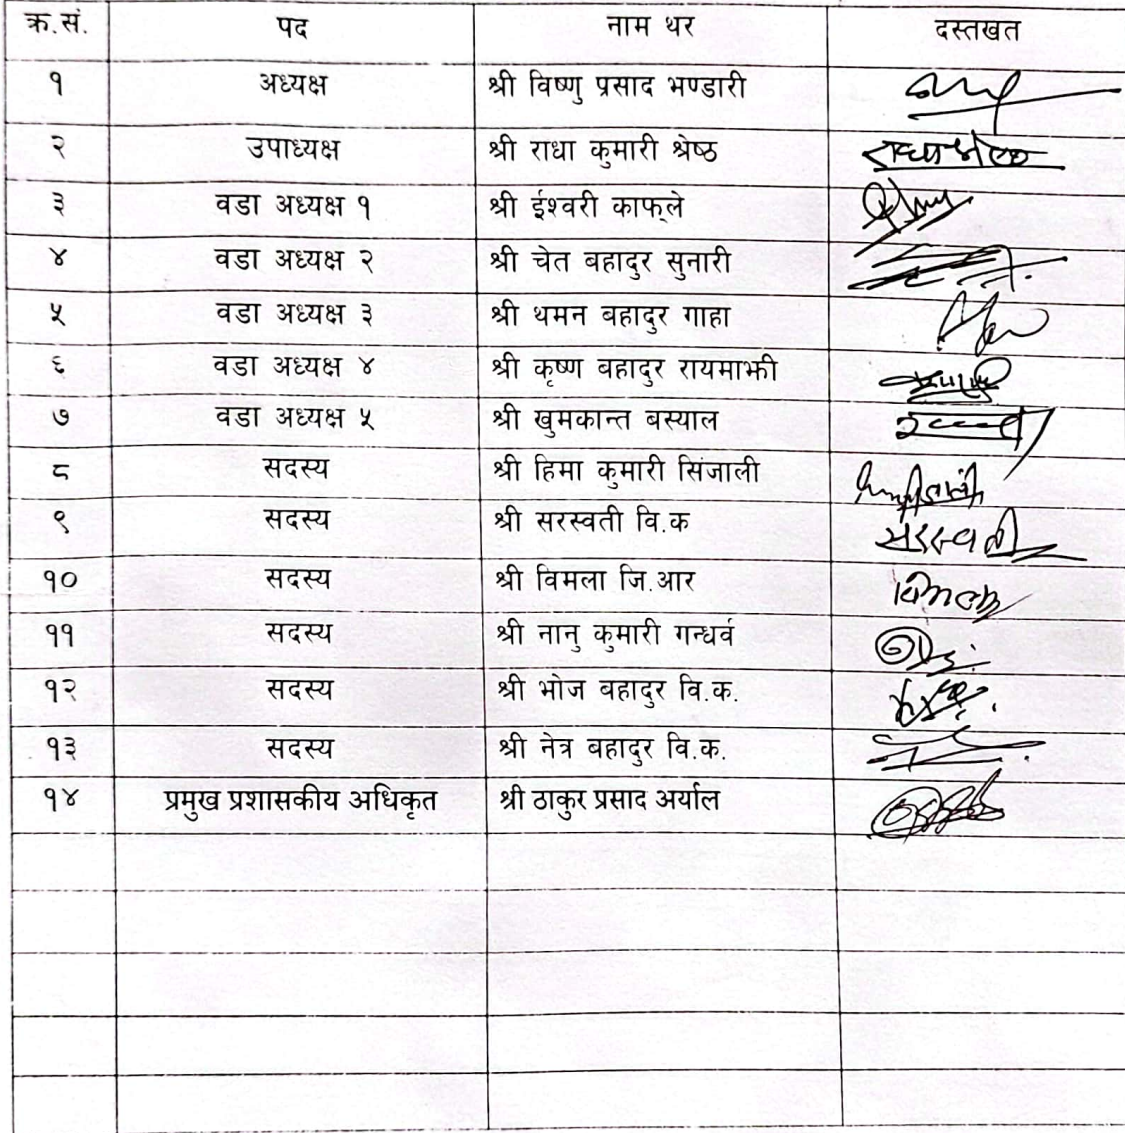 क्र.सं. पद नाम थर दस्तखत
१ अध्यक्ष श्री विष्णु प्रसाद भण्डारी
२ उपाध्यक्ष श्री राधा कुमारी श्रेष्ठ राधा श्रेष्ठ
३ वडा अध्यक्ष १ श्री ईश्वरी काफ्ले
४ वडा अध्यक्ष २ श्री चेत बहादुर सुनारी
५ वडा अध्यक्ष ३ श्री थमन बहादुर गाहा
६ वडा अध्यक्ष ४ श्री कृष्ण बहादुर रायमाझी
७ वडा अध्यक्ष ५ श्री खुमकान्त बस्याल
८ सदस्य श्री हिमा कुमारी सिंजाली
९ सदस्य श्री सरस्वती वि.क सरस्वती
१० सदस्य श्री विमला जि.आर विमला
११ सदस्य श्री नानु कुमारी गन्धर्व
१२ सदस्य श्री भोज बहादुर वि.क.
१३ सदस्य श्री नेत्र बहादुर वि.क.
१४ प्रमुख प्रशासकीय अधिकृत श्री ठाकुर प्रसाद अर्याल